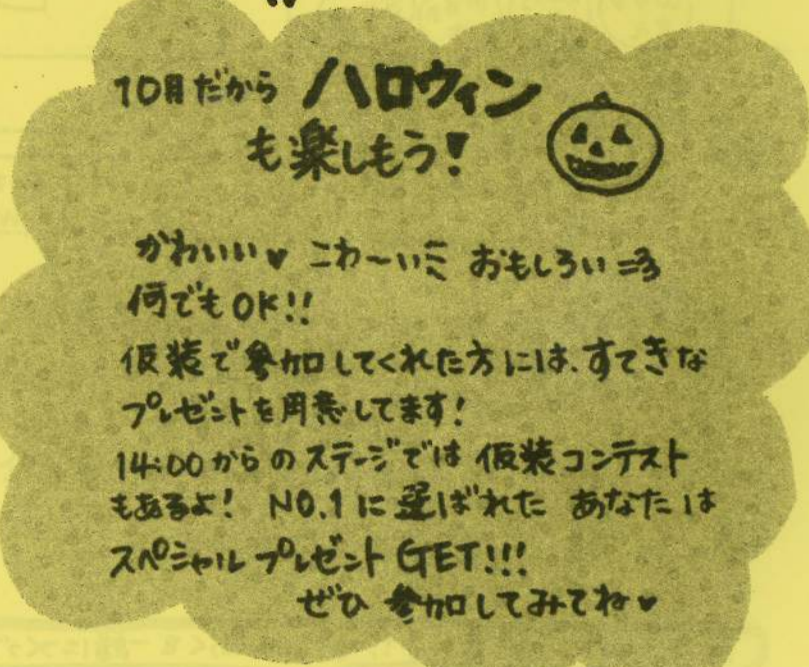 10月だから ハロウィン
も楽しもう!
かわいい♥ こわ〜い おもしろい
何でもOK!!
仮装で参加してくれた方には、すてきな
プレゼントを用意してます!
14:00からのステージでは 仮装コンテスト
もあるよ! NO.1に選ばれた あなたは
スペシャルプレゼント GET!!!
ぜひ 参加してみてね♥